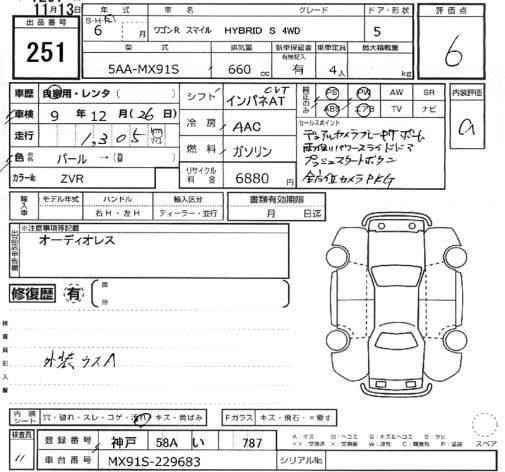 11月13日
出品番号
251
年式
S・H・R1
6
月
車名
グレード
ワゴンR スマイル HYBRID S 4WD
ドア・形状
5
評価点
6
型式
5AA-MX91S
排気量
660 cc
新車保証書
有無記入
有
乗車定員
4人
最大積載量
kg
車歴 自家用・レンタ( )
車検 9年12月(26日)
走行 1,305 km
色 パール →( )
カラーNo. ZVR
シフト CVT インパネAT
冷房 AAC
燃料 ガソリン
リサイクル料金 6880円
PS PW AW SR
ABS エアB TV ナビ
セールスポイント
デュアルカメラブレーキサポート
両側パワースライドドア
プッシュスタートボタン
全方位カメラPKG
内装評価
a
輸入車
モデル年式
ハンドル
右H・左H
輸入区分
ディーラー・並行
書類有効期限
月 日迄
出品店申告欄
※注意事項等記載
オーディオレス
修復歴 有
箇所
検査員記入欄
外装ウスA
内装シート 穴・破れ・スレ・コゲ・汚れ・キズ・黄ばみ
Fガラス キズ・飛石・×要す
検査員
11
登録番号 神戸 58A い 787
車台番号 MX91S-229683
シリアルNo.
A:キズ U:ヘコミ B:キズ&ヘコミ S:サビ
××:交換済 ×:交換要 W:波有 C:腐食有 P:塗装
スペア